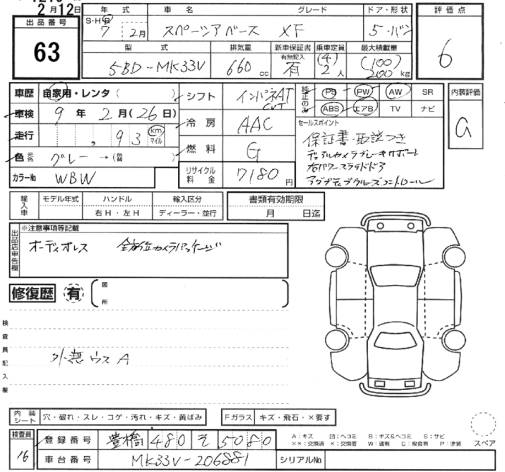 2月12日
年式 車名 グレード ドア・形状 評価点
出品番号 S・H 7年 2月 スペーシアベース XF 5・バン
63
型式 排気量 新車保証書 乗車定員 最大積載量 6
5BD-MK33V 660cc 有無記入 有 (4) 2人 (100) 200kg
車歴 自家用・レンタ( ) シフト インパネAT 純正のみ PS PW AW SR 内装評価
車検 9年 2月(26日) ABS エアB TV ナビ G
走行 , 93 km マイル 冷房 AAC セールスポイント
保証書・取説つき
色 元色 グレー→(替 ) 燃料 G デュアルカメラブレーキサポート
右パワースライドドア
カラーNo WBW リサイクル料金 7180円 アダプティブクルーズコントロール
輸入車 モデル年式 ハンドル 輸入区分 書類有効期限
右H・左H ディーラー・並行 月 日迄
出品店申告欄 ※注意事項等記載
オーディオレス 全方位カメラパッケージ
修復歴 有 箇所
検査員記入欄
外無ウスA
内装シート 穴・破れ・スレ・コゲ・汚れ・キズ・黄ばみ Fガラス キズ・飛石・×要す
検査員 登録番号 豊橋 480 そ 5080 A:キズ U:ヘコミ B:キズ&ヘコミ S:サビ スペア
16 車台番号 MK33V-206881 シリアルNo